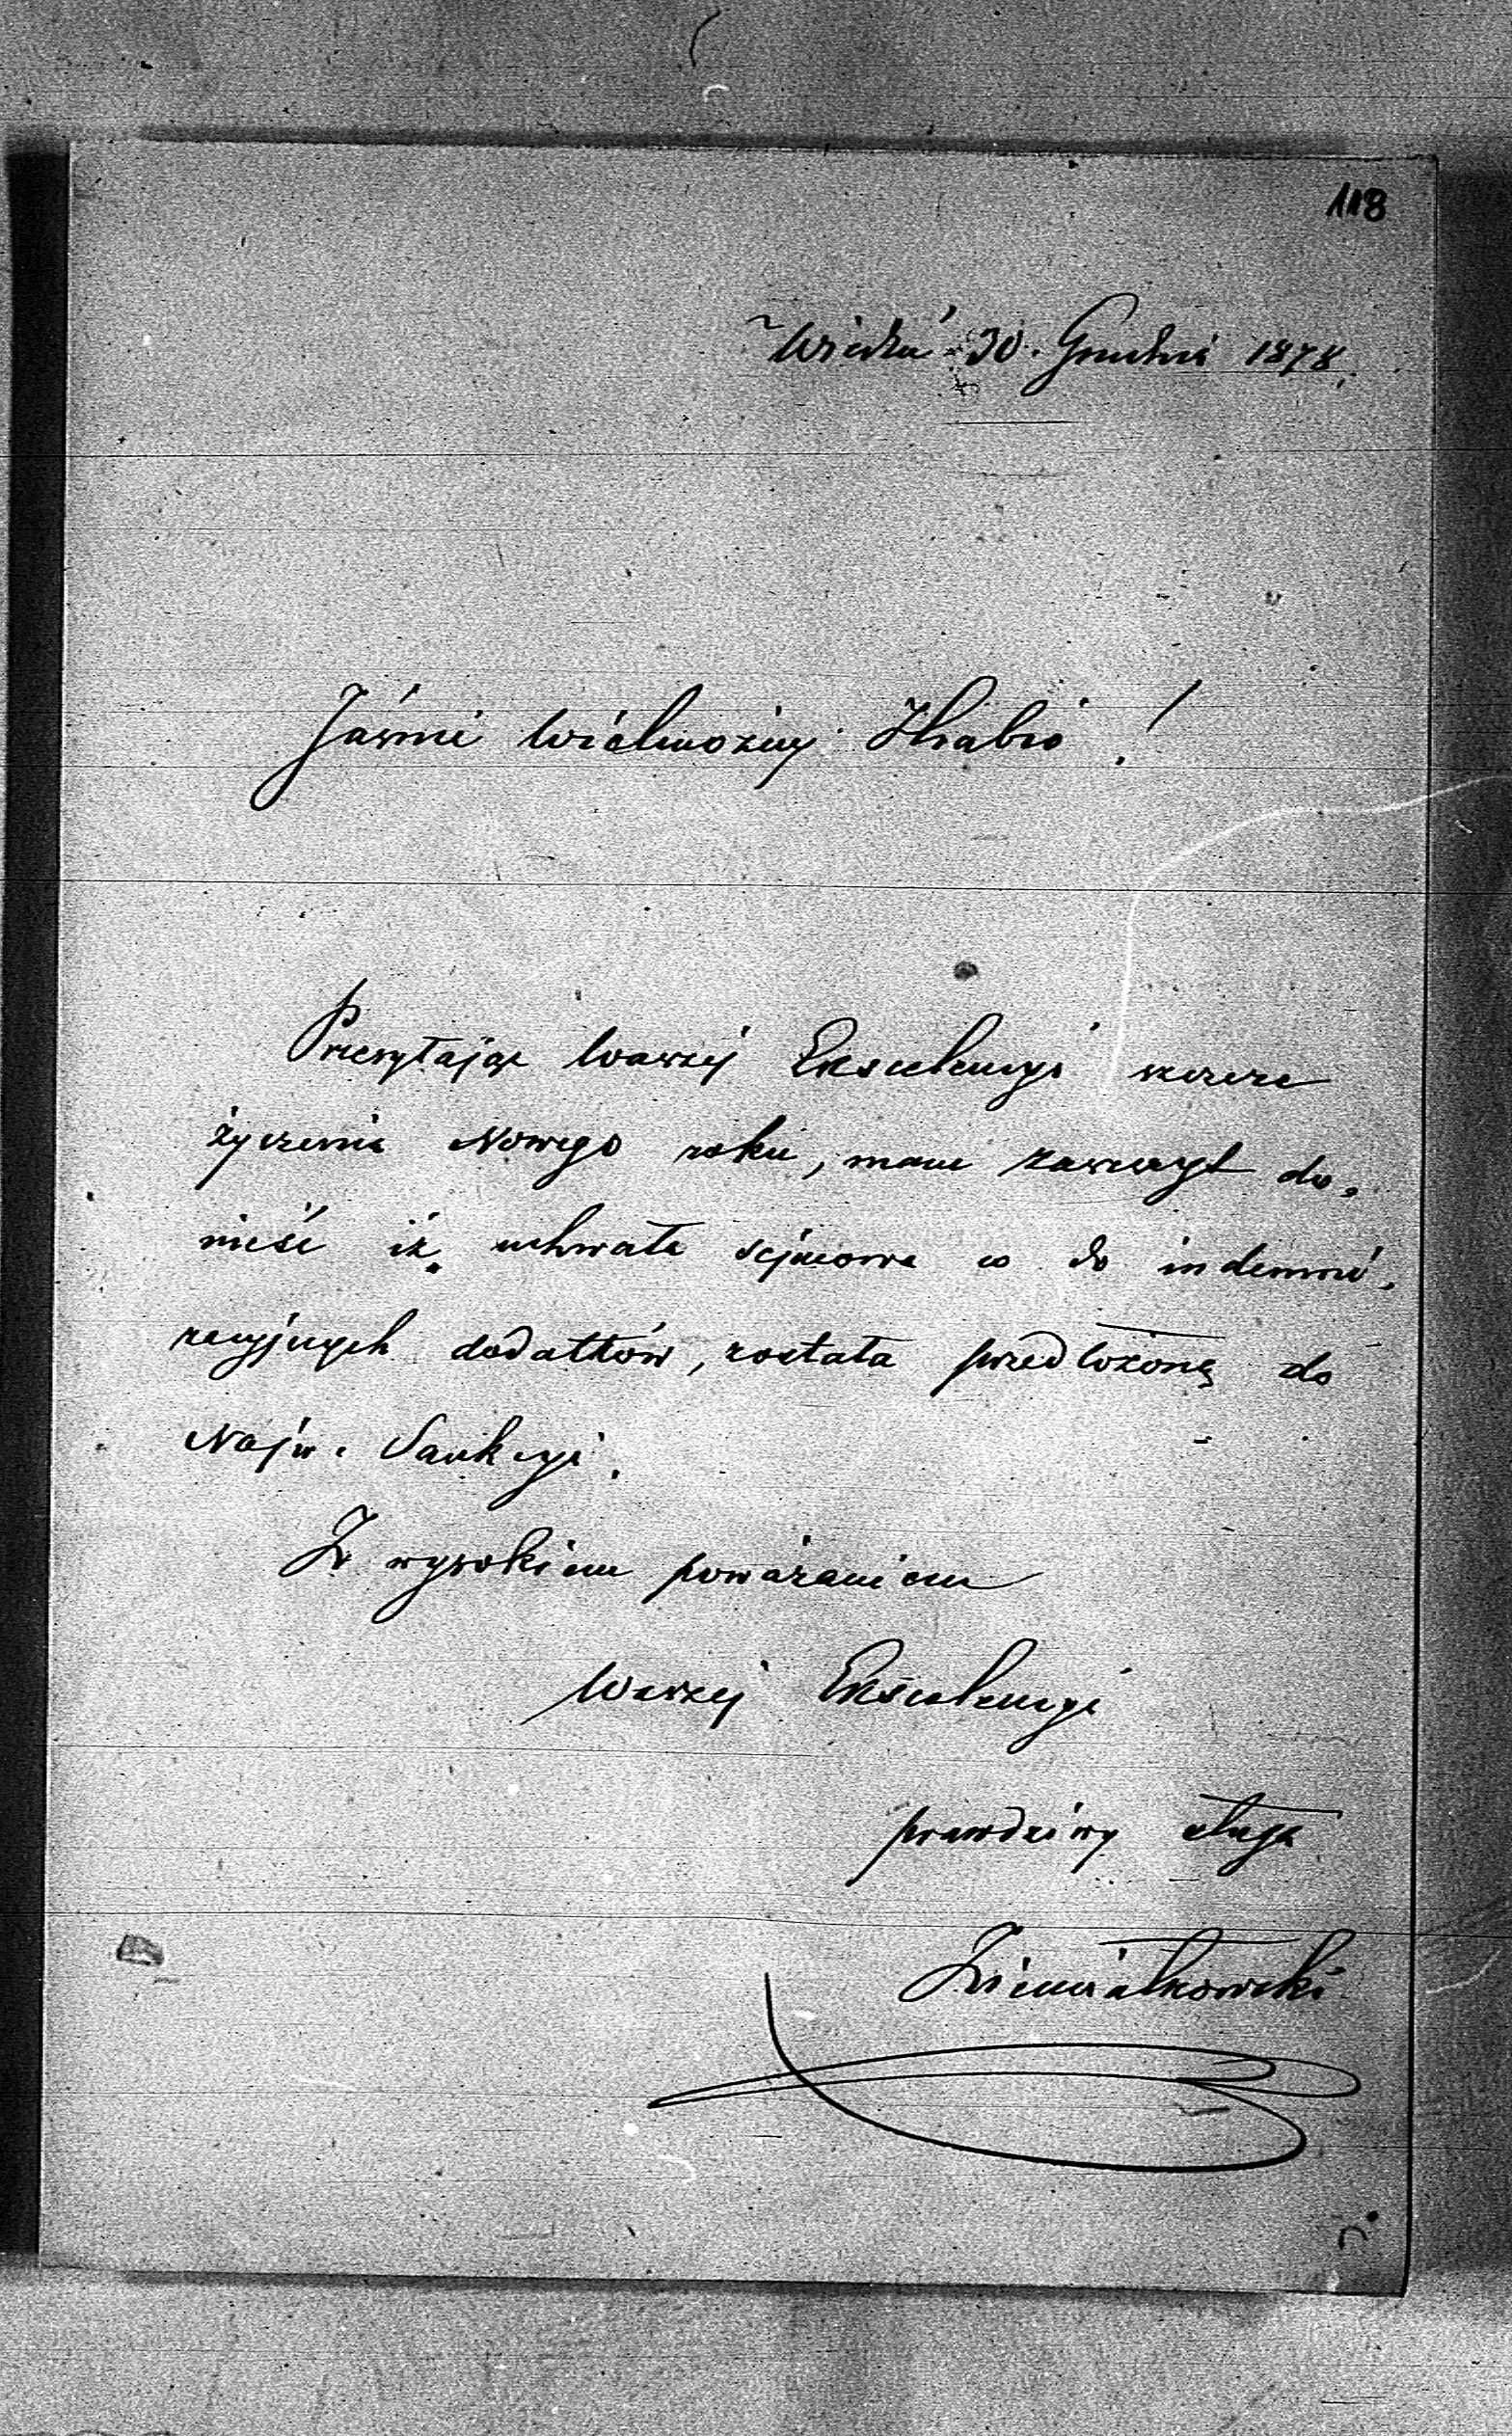 118
Wiedeń 30. Grudnia 1878.
Jaśnie Wielmożny Hrabio!
Przesyłając Waszej Ekscelencyi szczere
życzenia Nowego roku, mam zaszczyt do-
nieść iż uchwała sejmowa co do indemni-
zacyjnych dodatków, została przedłożoną do
Najw. Sankcyi.
Z wysokiem poważaniem
Waszej Ekscelencyi
prawdziwy sługa
Ziemiałkowski